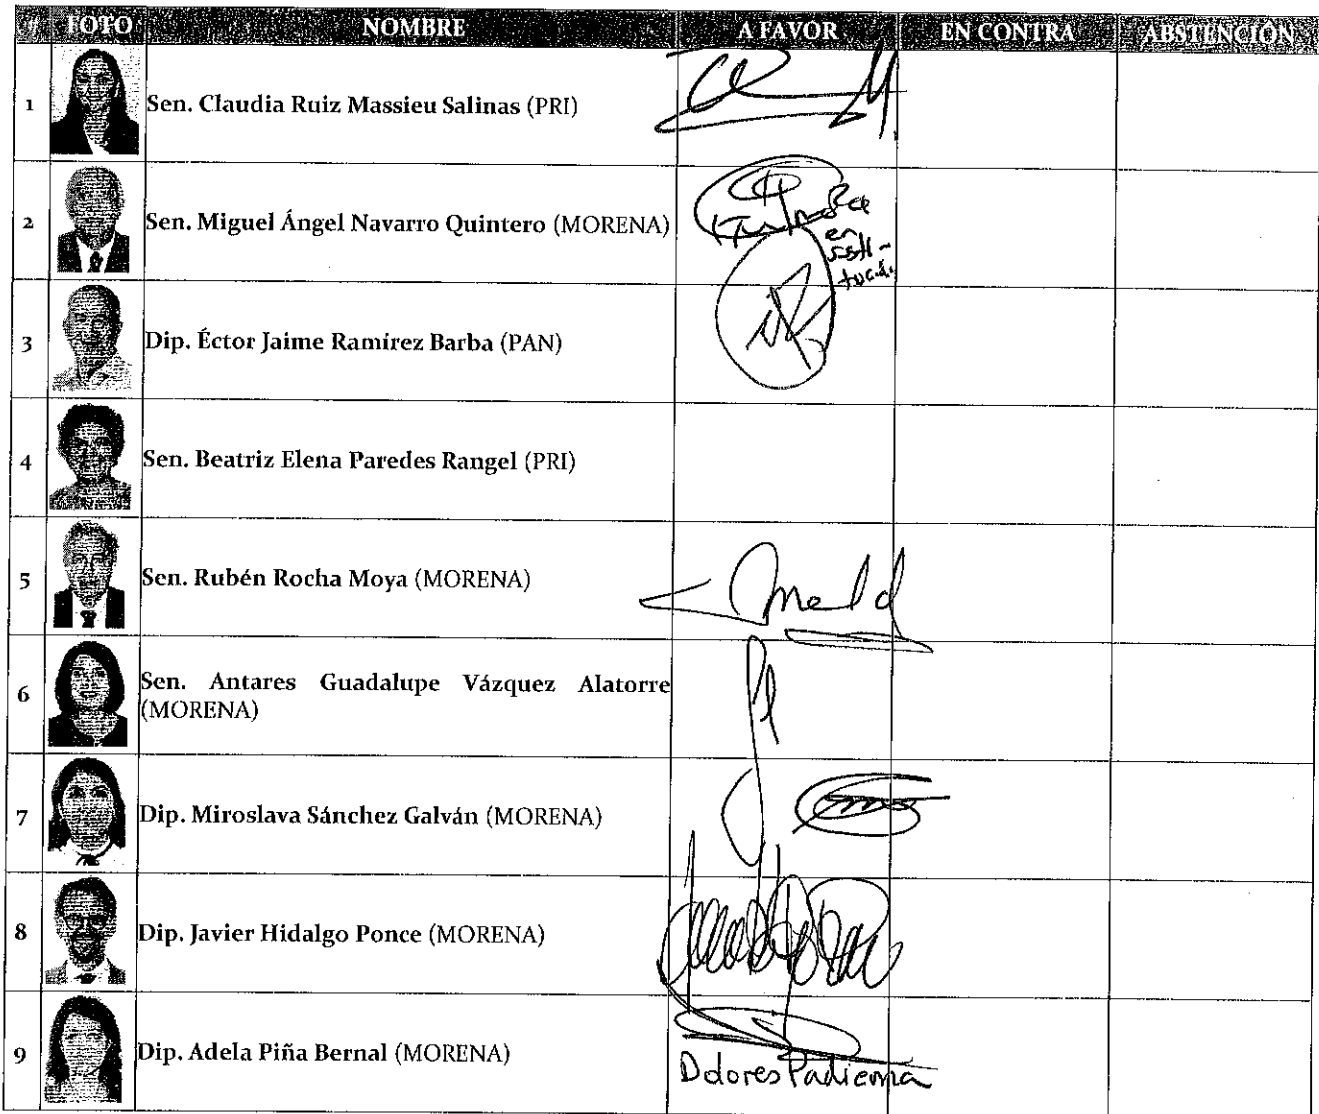 # FOTO NOMBRE A FAVOR EN CONTRA ABSTENCIÓN
1 Sen. Claudia Ruiz Massieu Salinas (PRI)
2 Sen. Miguel Ángel Navarro Quintero (MORENA)
en
3 Dip. Éctor Jaime Ramírez Barba (PAN)
4 Sen. Beatriz Elena Paredes Rangel (PRI)
5 Sen. Rubén Rocha Moya (MORENA)
6 Sen. Antares Guadalupe Vázquez Alatorre
(MORENA)
7 Dip. Miroslava Sánchez Galván (MORENA)
8 Dip. Javier Hidalgo Ponce (MORENA)
9 Dip. Adela Piña Bernal (MORENA)
Dolores Padierna